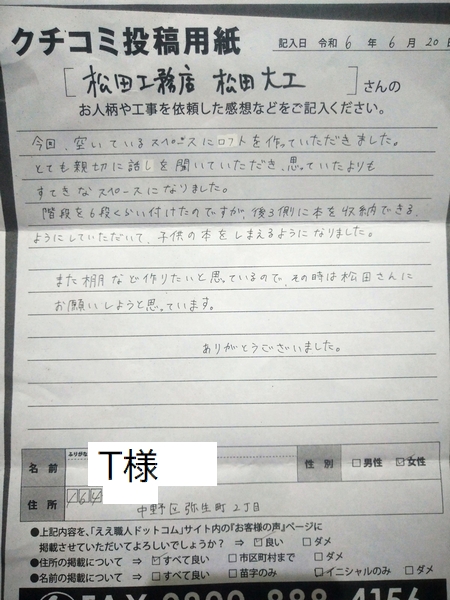 クチコミ投稿用紙
記入日 令和 6 年 6 月 20日
[松田工務店 松田大工]さんの
お人柄や工事を依頼した感想などをご記入ください。
今回、空いているスペースにロフトを作っていただきました。
とても親切に話しを聞いていただき、思っていたよりも
すてきなスペースになりました。
階段を6段くらい付けたのですが、後3側に本を収納できる
ようにしていただいて、子供の本をしまえるようになりました。
また棚など作りたいと思っているので、その時は松田さんに
お願いしようと思っています。
ありがとうございました。
ふりがな
名前 T様 性別 □男性 ☑女性
住所 164
中野区弥生町2丁目
●上記内容を、「ええ職人ドットコム」サイト内の『お客様の声』ページに
掲載させていただいてよろしいでしょうか? ⇒ ☑良い □ダメ
●住所の掲載について ⇒ ☑すべて良い □市区町村まで □ダメ
●名前の掲載について ⇒ □すべて良い □苗字のみ ☑イニシャルのみ □ダメ
FAX 0800-888-4156